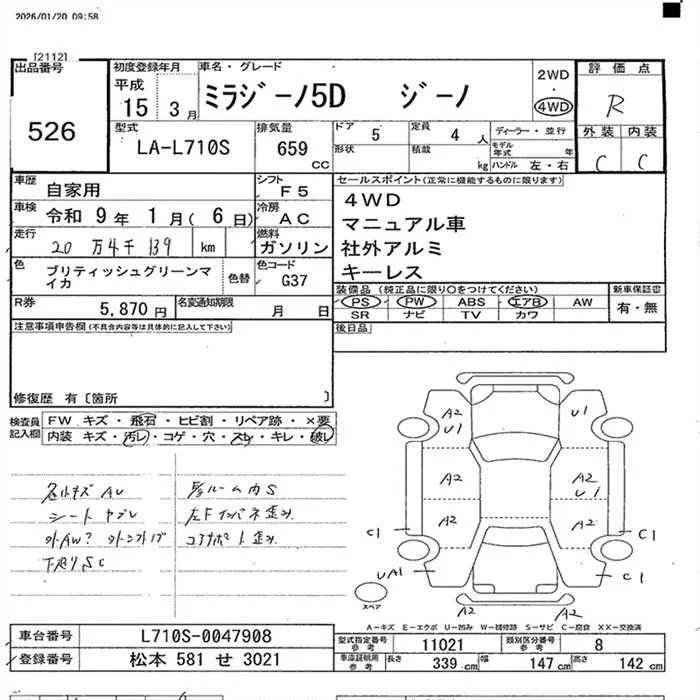 2026/01/20 09:58
[2112]
出品番号
526
初度登録年月
平成
15 3月
車名・グレード
ミラジーノ5D ジーノ
2WD
・
4WD
評価点
R
外装 内装
C C
型式
LA-L710S
排気量
659
CC
ドア 5
定員 4 人
形状
積載 kg
ディーラー・並行
モデル年式 年
ハンドル 左・右
車歴 自家用
シフト F5
車検 令和 9年 1月(6日)
冷房 AC
走行 20万4千139 km
燃料 ガソリン
色 ブリティッシュグリーンマイカ
色替
色コード G37
R券 5,870円
名変通知期限 月 日
セールスポイント(正常に機能するものに限ります)
4WD
マニュアル車
社外アルミ
キーレス
装備品(純正品に限り○をつけてください)
新車保証書
PS PW ABS エアB AW
SR ナビ TV カワ
有・無
後日品
注意事項申告欄(不具合内容等は具体的に記入して下さい)
修復歴 有〔箇所 〕
検査員記入欄
FW キズ・飛石・ヒビ割・リペア跡・×要
内装 キズ・汚レ・コゲ・穴・スレ・キレ・破レ
シート ヤブレ
外AW?
ルーム内S
左Fインパネ歪み
コアサポート歪み
A2
U1
U1
A2
A2
U1
A2
A2
C1
C1
UA1
C1
スペア
A2
A2
A−キズ E−エクボ U−凹み W−補修跡 S−サビ C−腐食 XX−交換済
車台番号 L710S-0047908
登録番号 松本 581 せ 3021
型式指定番号 参考 11021
類別区分番号 参考 8
車庫証明用 参考
長さ 339 cm
幅 147 cm
高さ 142 cm